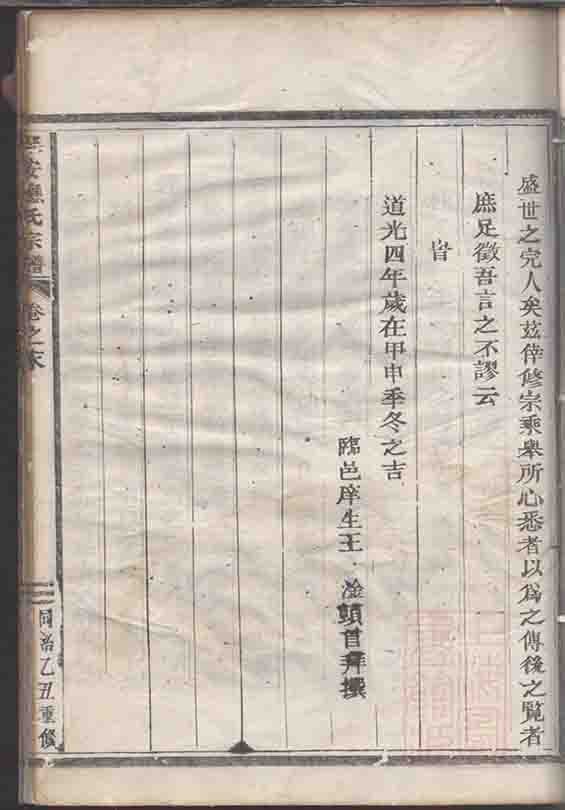 盛世之完人矣茲倖修宗乘舉所心悉者以爲之傳後之覽者
庶足徵吾言之不謬云
旹
道光四年歲在甲申季冬之吉
臨邑庠生王淦頓首拜撰
安氏宗譜
卷之末
同治乙丑重修